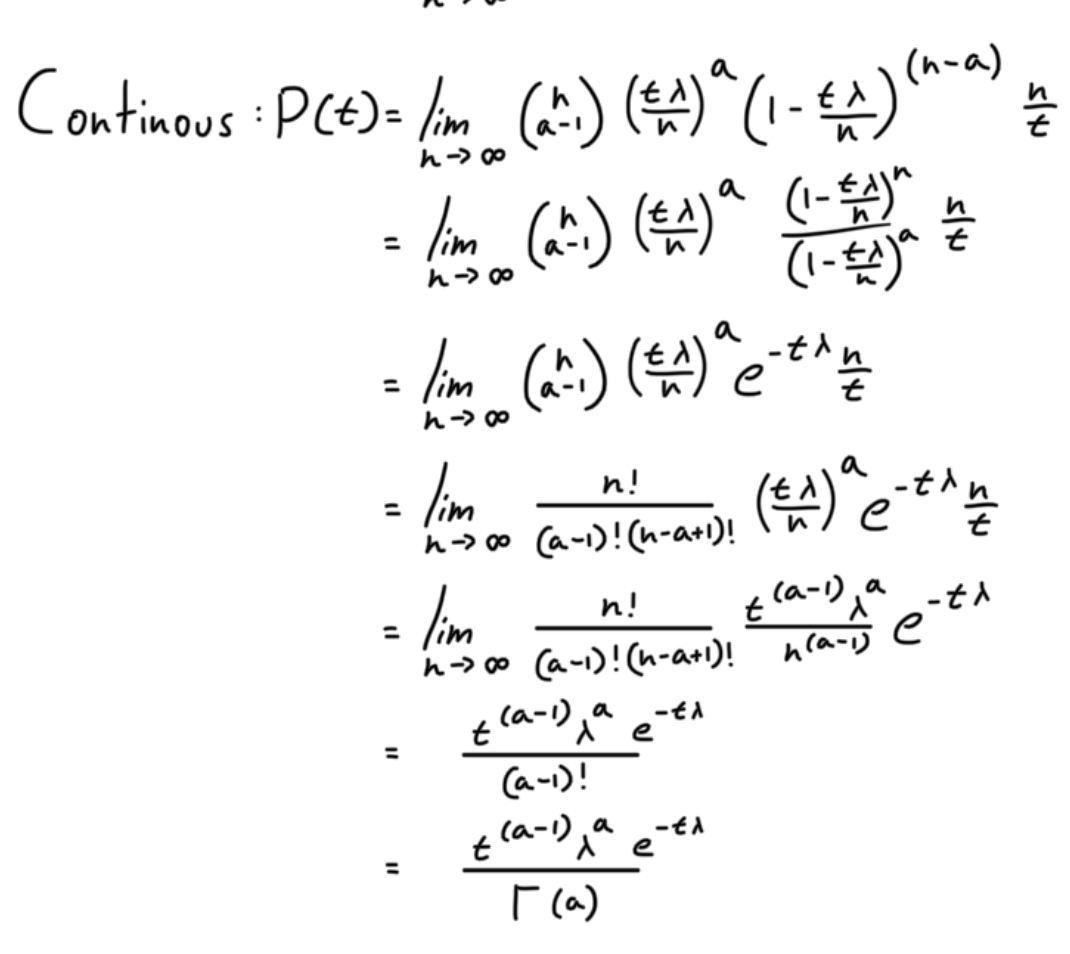 n→∞
Continous : P(t) = lim_{n→∞} \binom{n}{a-1} (\frac{tλ}{n})^a (1 - \frac{tλ}{n})^{(n-a)} \frac{n}{t}
= lim_{n→∞} \binom{n}{a-1} (\frac{tλ}{n})^a \frac{(1-\frac{tλ}{n})^n}{(1-\frac{tλ}{n})^a} \frac{n}{t}
= lim_{n→∞} \binom{n}{a-1} (\frac{tλ}{n})^a e^{-tλ} \frac{n}{t}
= lim_{n→∞} \frac{n!}{(a-1)!(n-a+1)!} (\frac{tλ}{n})^a e^{-tλ} \frac{n}{t}
= lim_{n→∞} \frac{n!}{(a-1)!(n-a+1)!} \frac{t^{(a-1)} λ^a}{n^{(a-1)}} e^{-tλ}
= \frac{t^{(a-1)} λ^a e^{-tλ}}{(a-1)!}
= \frac{t^{(a-1)} λ^a e^{-tλ}}{Γ(a)}